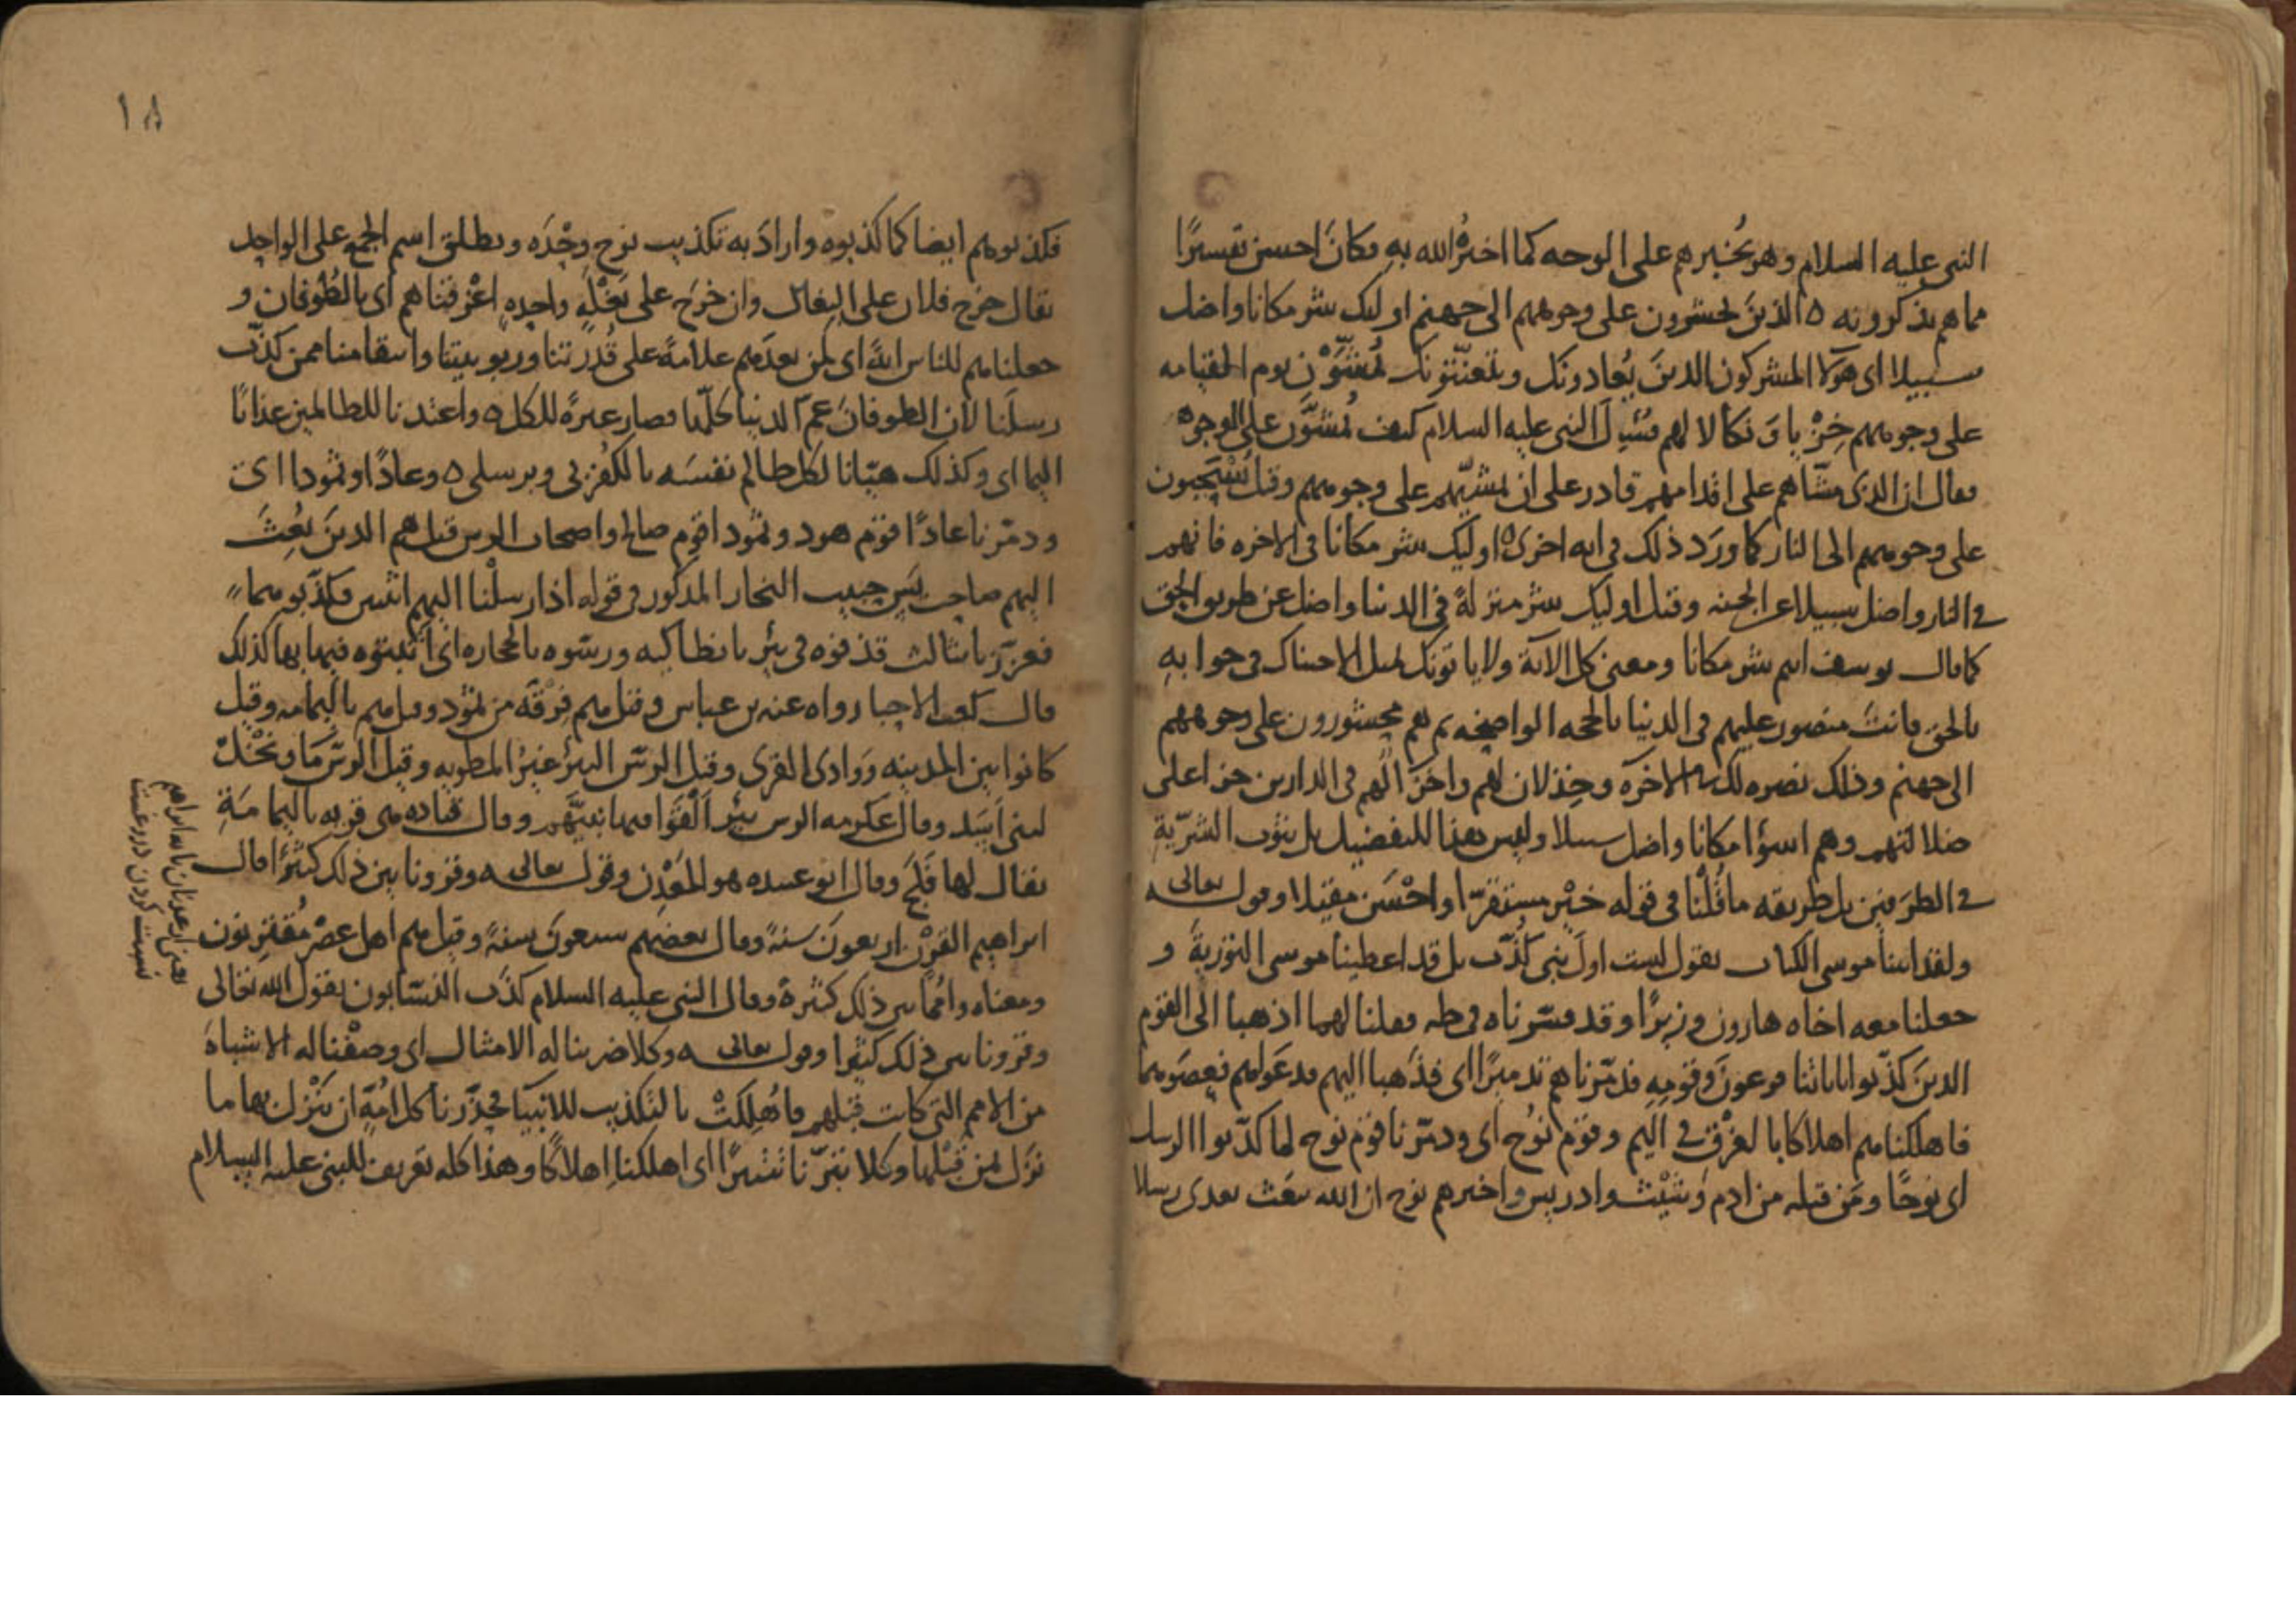 النبى عليه السلام وهو يُخبرهم على الوجه كما اخبرُه الله به فكانَ احسن تفسيرًا
مما هم يذكرونه ٥ الذينَ يحشرون على وجوههم الى جهنم اوليك شر مكانا واضل
سبيلا اى هولا المشركون الدين يُعادونك ويتعنّتونك يُمَشَّوْن يوم القيامه
على وجوههم خِزْيا ونكالا لهم فسُيلَ النبى عليه السلام كيف يُمشَّون على الوجوه
فقال ان الذى مشّاهم على اقدامهم قادر على ان يمشيّهم على وجوههم وقيل يُسْحَبون
على وجوههم الى النار كما ورَد ذلك فى ايه اخرى ٥ اوليك شر مكانا فى الاخره فانهم
فى النار واضل سبيلا عن الجنه وقيل اوليك شر منزلةً فى الدنيا واضل عن طريق الحق
كما قال يوسف انتم شر مكانا ومعنى كل الآية ولا ياتونك بمثل الا جيناك فى جوابهِ
بالحق فانتَ منصور عليهم فى الدنيا بالحجه الواضحه ثم هم يحشرون على وجوههم
الى جهنم وذلك نصره لك فى الاخرَه وخِذلان لهم واخزآ لهم فى الدارين جزاءً على
ضلالتهم وهم اسؤا مكانا واضل سبيلا وليس هذا للتفضيل بل ثبوت الشرّيةِ
فى الطرَفين بل طريقه ما قُلْنا فى قوله خيْر مستقرّا واحْسَن مقيلا وقوله تعالى
ولقد اتينا موسى الكتاب يقول لست اولَ نبى كُذِّب بل قد اعطينا موسى التوريةَ و
جعلنا معه اخاه هارون وزيرًا وقد فسّرناه فى طه فقلنا لهما اذهبا الى القوم
الدينَ كذّبوا باياتنا فرعونَ وقومِه فدمّرناهم تدميرًا اى فذَهبا اليهم فدعَواهم فعصَوهما
فاهلكناهم اهلاكا بالغرْق فى اليم وقومَ نُوح اى ودمّرنا قوم نوح لما كذّبوا الرسل
اى نوحًا ومَن قبله من ادم وشيْث وادريس واخبرهم نوح ان الله يبعَث بعدى رسلا
١٨
فكذبوهم ايضا كما كذبوه وارادَ به تكذيب نوح وحْدَه ويطلق اسم الجمع على الواحد
يقال خرج فلان على البغال وان خرَج على بَغْلَةٍ واحدهٍ اغرقناهم اى بالطُوفان و
جعلناهم للناس ايةً اى لمن بعدَهم علامةً على قُدرتنا وربوبيتنا وانتقامنا ممن كذّب
رسلَنا لان الطوفانَ عمّ الدنيا كلّها فصار عبرةً للكل ٥ واعتدنا للظالمين عذابًا
اليما اى وكذلك هيّانا لكل ظالم نفسَه بالكُفر بى وبرسلى ٥ وعادًا وثمودا اى
ودمّرنا عادًا قوْم هود وثمودا قوم صالح واصحاب الرس قيل هم الدينَ بُعِثَ
اليهم صاحب يس حبيب النجار المذكور فى قوله اذ ارسلْنا اليهم اثنين فكذّبوهما
فعزّزنا بثالث قذفوه فى بئر بانطاكيه ورسّوه بالحجاره اى اثبتوه فيها بها كذلك
قال كعب الاحبار رواه عنه بن عباس وقيل هم فِرْقَه من ثمود وقيل هم باليمامه وقيل
كانوا بين المدينه ووَادى القرى وقيل الرسّ البئرُ غيْرُ المطويه وقيل الرسّ مَا ونَخْلٌ
لبنى اَسَد وقال عكرمه الرس بئر اَلْقَوا فيها نبيَّهم وقال قتاده هى قريه باليمامَةِ
يقال لها فَلَج وقال ابو عبيده هو المَعْدِن وقوله تعالى وقرونا بين ذلك كثيرًا قال
ابراهيم القرْن اربعونَ سنةً وقال بعضهم سبعونَ سنهً وقيل هم اهل عصْر مُقترِنون
ومعناه وامُما بين ذلك كثيرةً وقال النبى عليه السلام كذَب النسّابون يقول الله تعالى
وقرونا بين ذلك كثيرا وقوله تعالى وكلا ضربنا له الامثال اى وصفْنا له الاشباهَ
من الامم التى كانت قبلهم فاُهلِكتْ بالتكذيب للانبيا فحذّرنا كل امّةٍ ان يَنْزل بها ما
نزَل بمن قبْلها وكلا تبّرنا تتبيرًا اى اهلكنا اِهلاكًا وهذا كله تعريف للنبى عليه السلام
يعنى از عدنان تا به ابراهيم
نسبت كردن دروغست